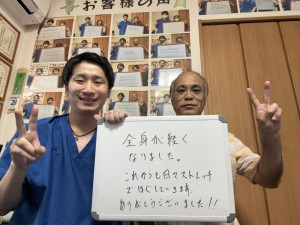 お客様の声
全身が軽く
なりました。
これからも日々ストレッチ
でほぐしていきます。
ありがとうございました!!